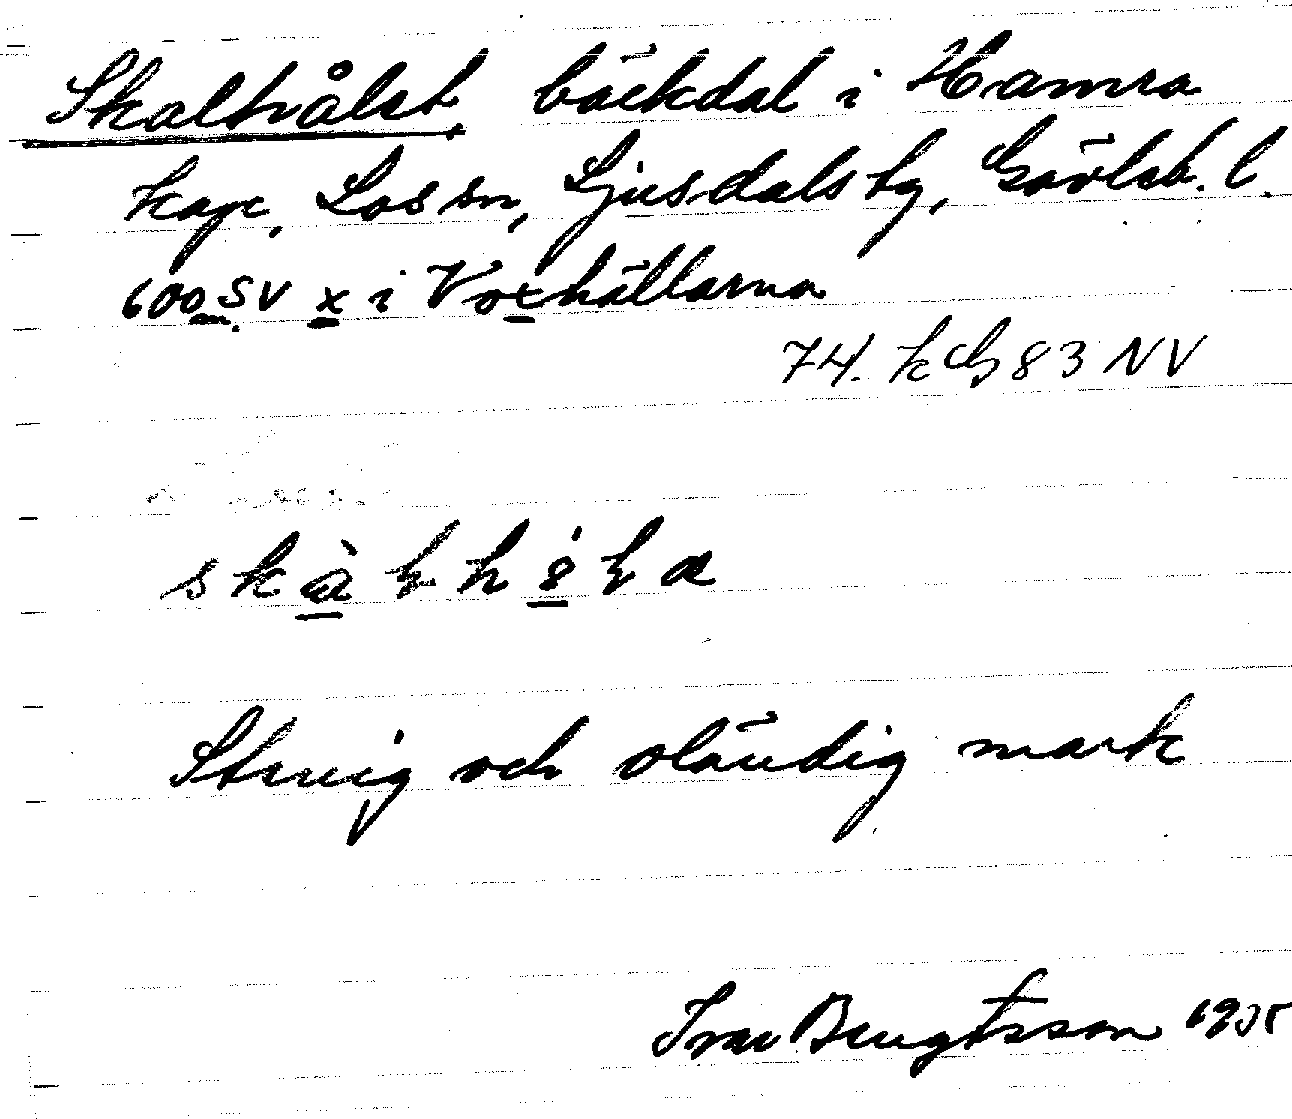 Skalhålet, bäckdal i Hamra
kap, Los sn, Ljusdals tg, Gävleb. l.
600 m SV x i Voxhällarna
74. k G 83 NV
Stenig och oländig mark
Ivar Bengtsson 1935